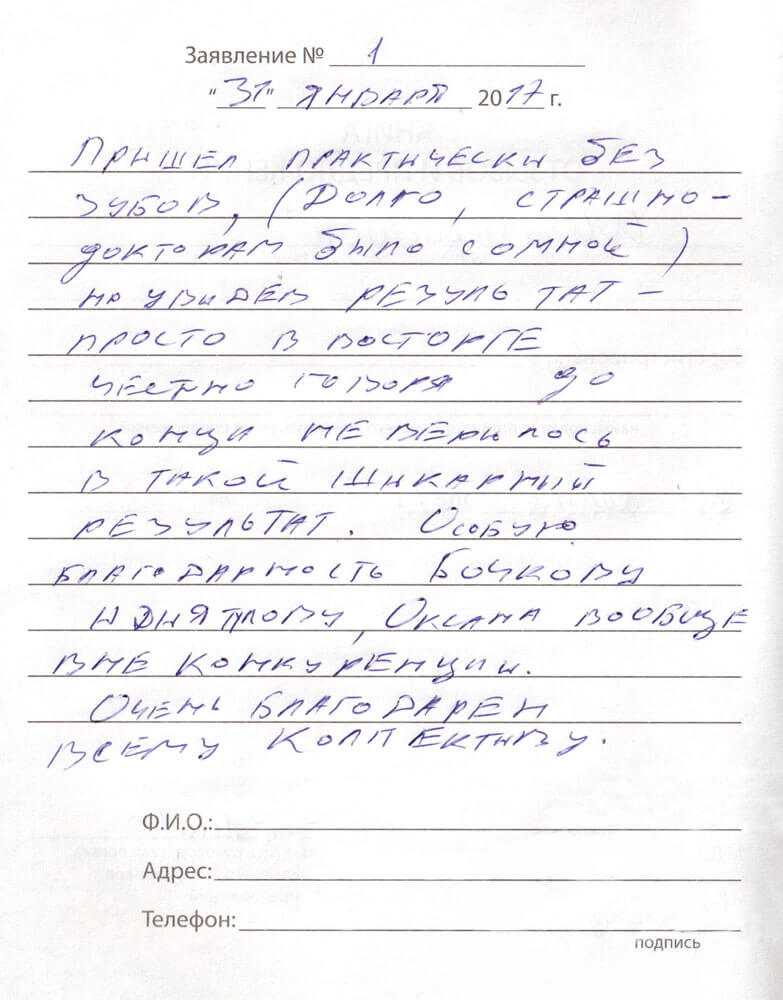 Заявление № 1
"31" января 2017 г.
Пришел практически без
зубов, (Долго, страшно-
докторам было со мной)
но увидев результат -
просто в восторге
честно говоря до
конца не верилось
в такой шикарный
результат. Особую
благодарность Бочкову
и Днятлову, Оксана вообще
вне конкуренции.
Очень благодарен
всему коллективу.
Ф.И.О.:
Адрес:
Телефон:
подпись